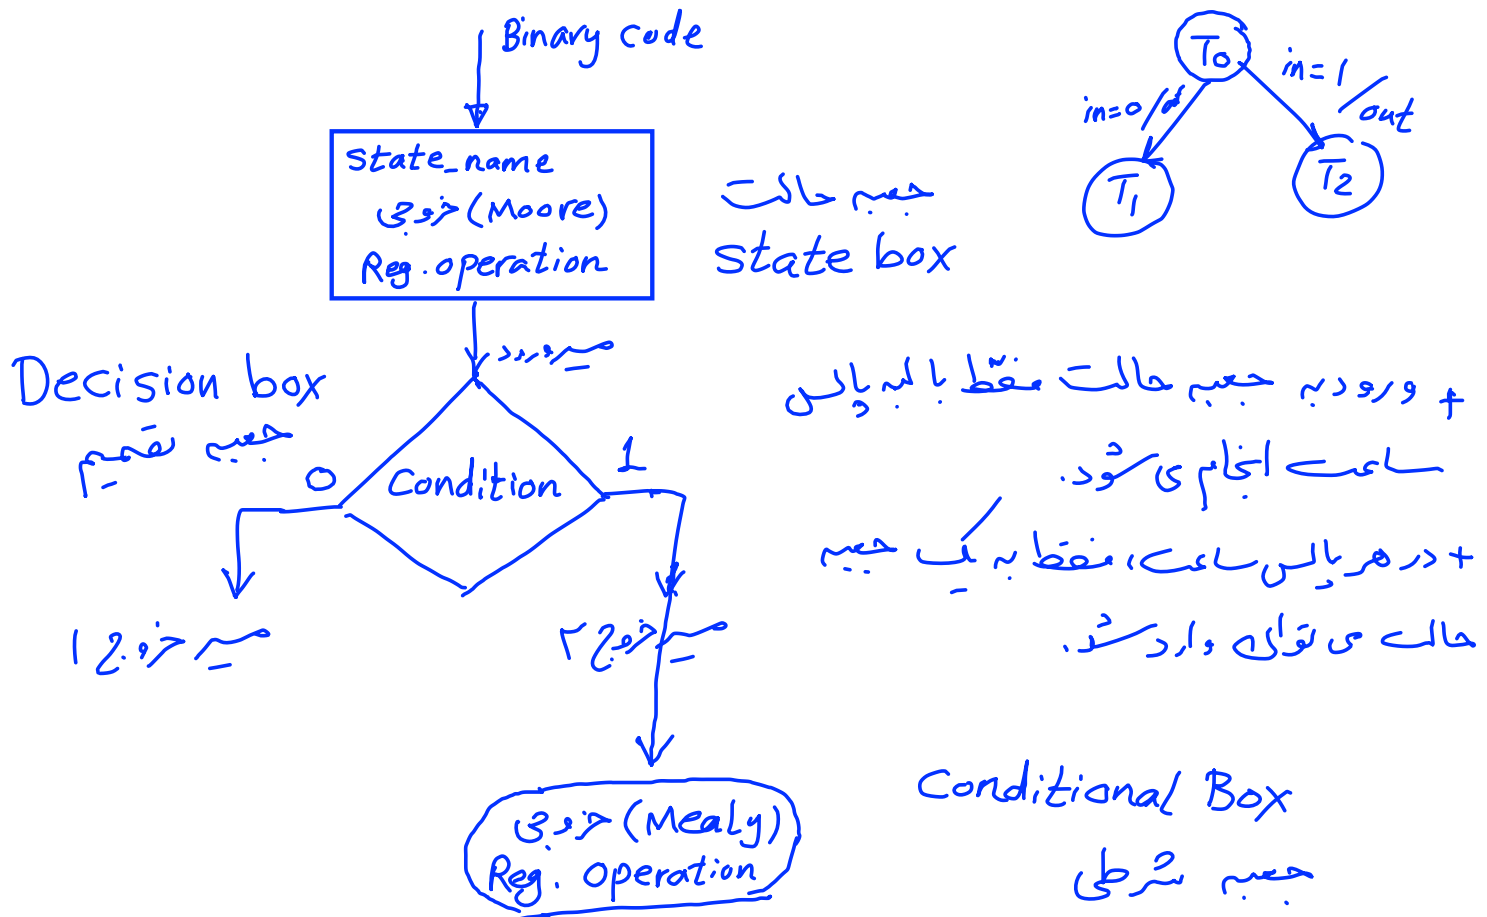 Binary code
State_name
خروجی (Moore)
Reg. operation
جعبه حالت
State box
T0
in=0/out
in=1/out
T1
T2
مسیر ورود
Decision box
جعبه تصمیم
Condition
0
1
مسیر خروج 1
مسیر خروج ۲
+ ورود به جعبه حالت فقط با لبه پالس
ساعت انجام می شود.
+ در هر پالس ساعت، فقط به یک جعبه
حالت می توان وارد شد.
خروجی (Mealy)
Reg. operation
Conditional Box
جعبه شرطی